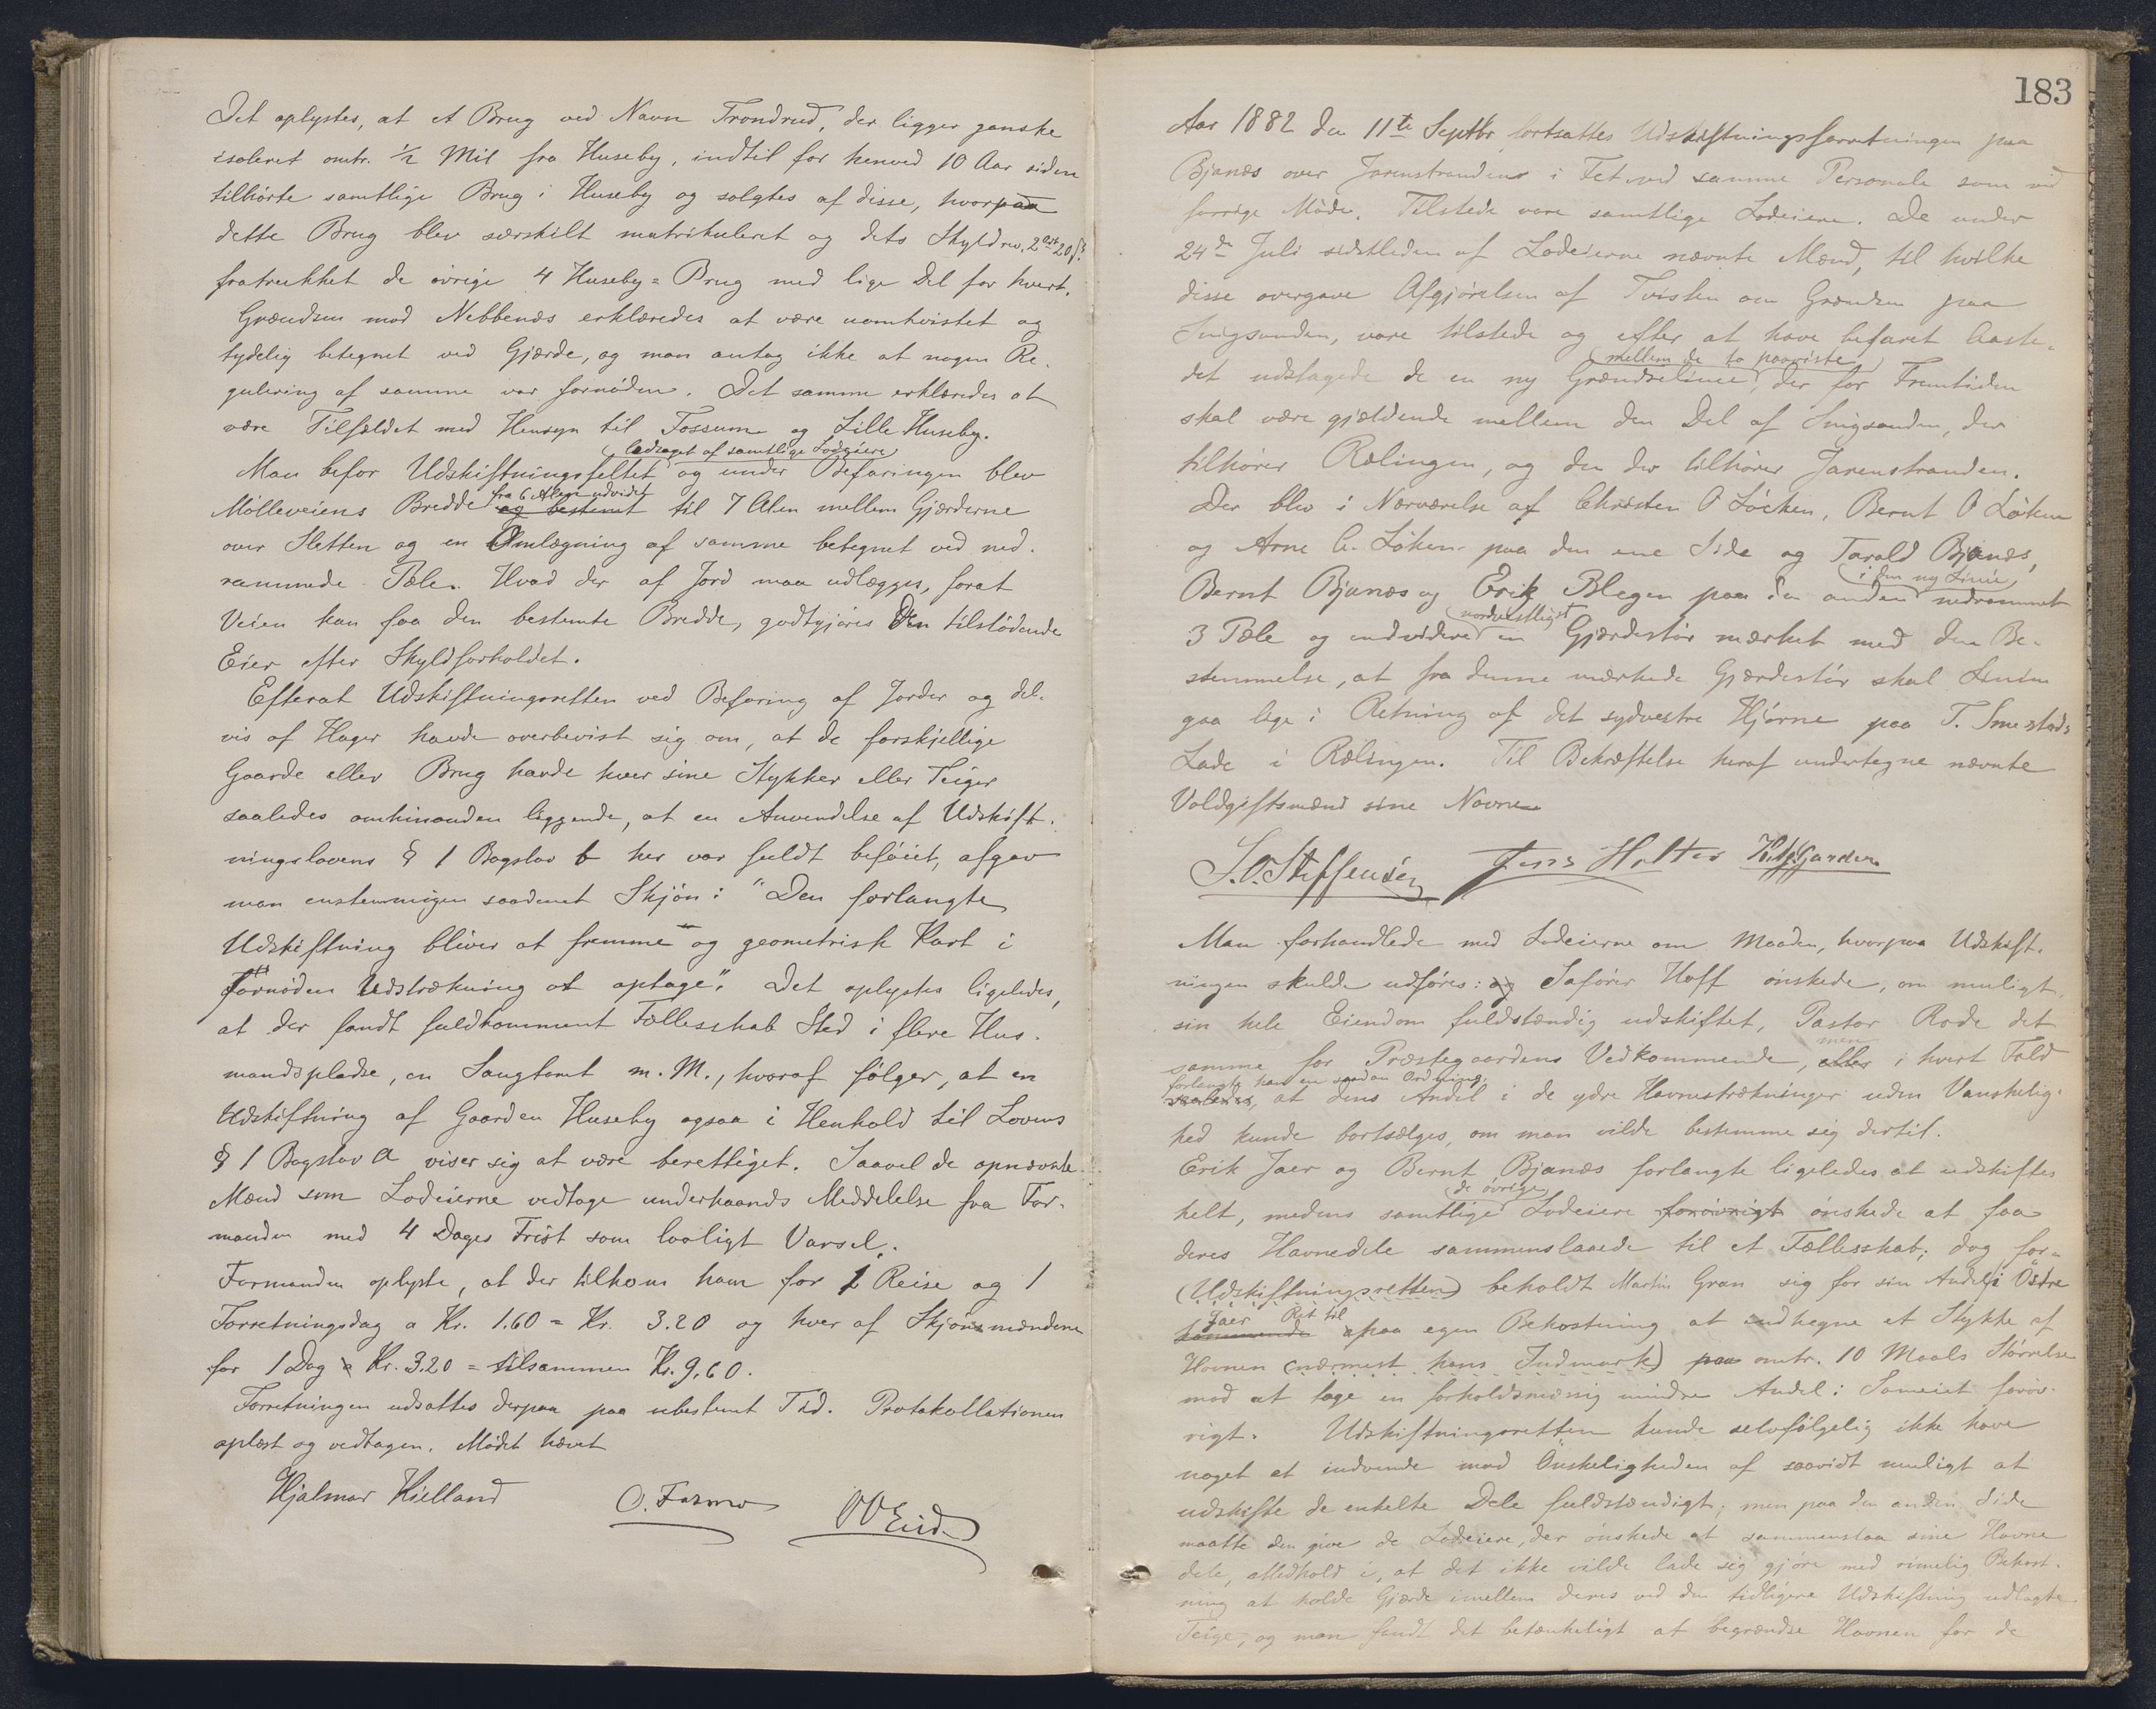 Det oplystes, at et Brug ved Navn Trondrud, der ligger ganske
isoleret omtr. ½ Mil fra Huseby, indtil for henved 10 Aar siden
tilhørte samtlige Brug i Huseby og solgtes af disse, hvorpaa
dette Brug blev særskilt matrikuleret og dets Skyld rev. 2 ort 20 ß
fratrukket de øvrige 4 Huseby-Brug med lige Del for hvert.
Grændsen mod Nebbenæs erklæredes at være uomtvistet og
tydelig betegnet ved Gjærde, og man antog ikke at nogen Re-
gulering af samme var fornøden. Det samme erklæredes at
være Tilfældet med Hensyn til Fossum og Lille Huseby.
ledsaget af samtlige Lodeiere
Man befor Udskiftningsfeltet og under Befaringen blev
fra 6 Alen udvidet
Mølleveiens Bredde og bestemt til 7 Alen mellem Gjærderne
over Sletten og en Omlægning af samme betegnet ved ned-
rammede Pæle. Hvad der af Jord maa udlægges, forat
Veien kan faa den bestemte Bredde, godtgjøres den tilstødende
Eier efter Skyldforholdet.
Efterat Udskiftningsretten ved Befaring af Jorder og del-
vis af Hager havde overbevist sig om, at de forskjellige
Gaarde eller Brug havde hver sine Stykker eller Teiger
saaledes omhinanden liggende, at en Anvendelse af Udskift-
ningslovens § 1 Bogstav b her var fuldt beføiet, afgav
man enstemmigen saadant Skjøn: "Den forlangte
Udskiftning bliver at fremme og geometrisk Kart i
fornøden Udstrækning at optage". Det oplystes ligeledes,
at der fandt fuldkomment Fællesskab Sted i flere Hus-
mandspladse, en Saugtomt m. M., hvoraf følger, at en
Udskiftning af Gaarden Huseby ogsaa i Henhold til Lovens
§ 1 Bogstav a viser sig at være berettiget. Saavel de opnævnte
Mænd som Lodeierne vedtage underhaands Meddelelse fra For-
manden med 4 Dages Frist som lovligt Varsel.
Formanden oplyste, at der tilkom ham for 1 Reise og 1
Forretningsdag a Kr. 1.60 = Kr. 3.20 og hver af Skjønsmændene
for 1 Dag a Kr. 3.20 = tilsammen Kr. 9.60.
Forretningen udsattes derpaa paa ubestemt Tid. Protokollationen
oplæst og vedtagen. Mødet hævet
Hjalmar Kielland O. Farmo Eid
183
Aar 1882 den 11te Septbr fortsattes Udskiftningsforretningen paa
Bjanæs over Jarenstranden i Fet med samme Personale som ved
forrige Møde. Tilstede vare samtlige Lodeiere. De under
24de Juli sidstleden af Lodeierne nævnte Mænd, til hvilke
disse overgave Afgjørelsen af Tvisten om Grændsen paa
Snigsanden, vare tilstede og efter at have befaret Aaste-
mellem de to paaviste
det udstagede de en ny Grændselinie, der for Fremtiden
skal være gjældende mellem den Del af Snigsanden, der
tilhører Rælingen, og den der tilhører Jarenstranden.
Der blev i Nærværelse af Christen O Løcken, Bernt O Løken
og Arne C. Løken paa den ene Side og Tarald Bjanæs,
i den ny Linie
Bernt Bjanæs og Erik Blegen paa den anden nedrammet
nordvestligst
3 Pæle og endvidere en Gjærdestør mærket med den Be-
stemmelse, at fra denne mærkede Gjærdestør skal Linien
gaa lige i Retning af det sydvestre Hjørne paa T. Smestads
Lade i Rælingen. Til Bekræftelse heraf undertegne nævnte
Voldgiftsmænd sine Navne
S.O. Steffensen Jens Holter
Man forhandlede med Lodeierne om Maaden, hvorpaa Udskift-
ningen skulde udføres: og Safører Hoff ønskede, om muligt,
sin hele Eiendom fuldstændig udskiftet, Pastor Rode det
men
samme for Præstegaardens Vedkommende, eller i hvert Fald
forlangte han en saadan Ordning,
saaledes, at dens Andel i de ydre Havnestrækninger uden Vanskelig-
hed kunde bortsælges, om man vilde bestemme sig dertil.
Erik Jaer og Bernt Bjanæs forlangte ligeledes at udskiftes
de øvrige
helt, medens samtlige Lodeiere forøvrigt ønskede at faa
deres Havnedele sammenslaaede til et Fællesskab; dog for-
(Udskiftningsretten) beholdt Martin Gran sig for sin Andel i Østre
Jaer Ret til
paa egen Bekostning at indhegne et Stykke af
Havnen (nærmest hans Indmark) paa omtr. 10 Maals Størrelse
mod at tage en forholdsmæssig mindre Andel i Sameiet forøv-
rigt. Udskiftningsretten kunde selvfølgelig ikke have
noget at indvende mod Ønskeligheden af saavidt muligt at
udskifte de enkelte Dele fuldstændigt; men paa den anden Side
maatte den give de Lodeiere, der ønskede at sammenslaa sine Havne
dele, Medhold i, at det ikke vilde lade sig gjøre med rimelig Bekost-
ning at holde Gjærde imellem deres ved den tidligere Udskiftning udlagte
Teige, og man fandt det betænkeligt at begrændse Havnen for de